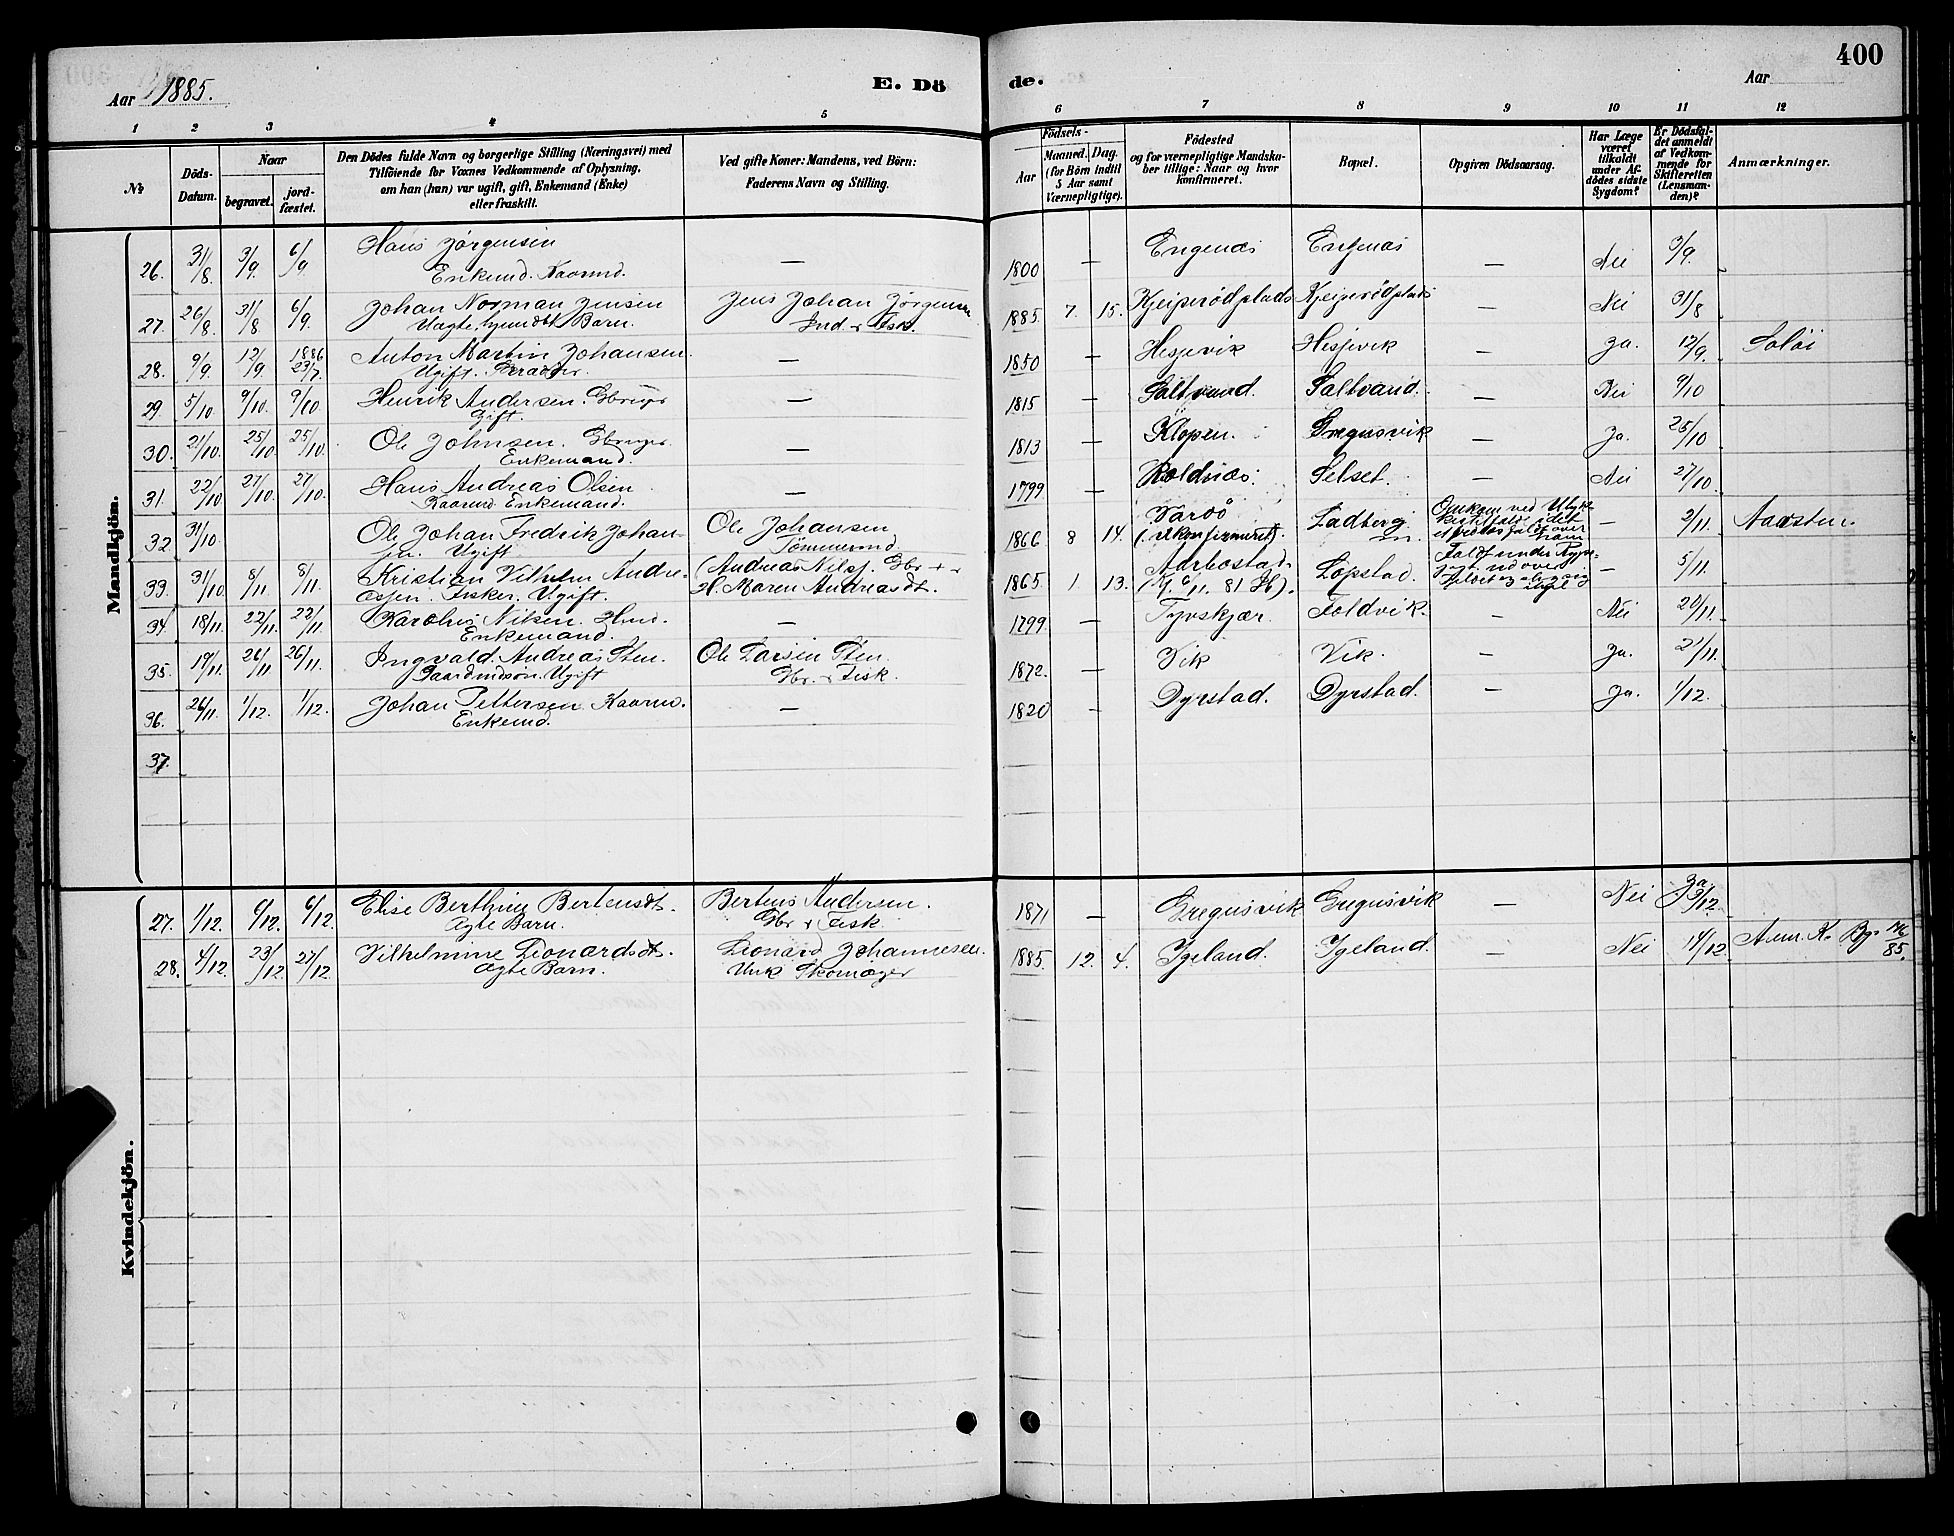 Aar 1885.
E. Dö
de.
Aar
400
1 2 3 4 5
6 7 8 9 10 11 12
No
Döds-
Datum.
Naar
begravet.
jord-
fæstet.
Den Dödes fulde Navn og borgerlige Stilling (Næringsvei) med
Tilföiende for Voxnes Vedkommende af Oplysning,
om han (hun) var ugift, gift, Enkemand (Enke)
eller fraskilt.
Ved gifte Koner: Mandens, ved Börn:
Faderens Navn og Stilling.
Födsels-
Aar
Maaned. Dag.
(for Börn indtil
5 Aar samt
Værnepligtige).
Födested
og for værnepligtige Mandska-
ber tillige: Naar og hvor
konfirmeret.
Bopæl.
Opgiven Dödsaarsag.
Har Læge
været
tilkaldt
under Af-
dödes sidste
Sygdom?
Er Dödsfal-
det anmeldt
af Vedkom-
mende for
Skifteretten
(Lensman-
den)?
Anmærkninger.
Mandkjön.
26. 31/8 3/9 6/9 Hans Jørgensen — 1800 — Engenæs Engenæs — Nei 3/9.
Enkemd. Kaarmd.
27. 26/8. 31/8 6/9. Johan Norman Jensen Jens Johan Jørgensen 1885. 7. 15. Kjeiprødplads Kjeiprødplads — Nei 31/8
Uægte, hjemdøbt Barn. Ind. + Fisk.
28. 9/9. 12/9 1886 23/7. Anton Martin Johansen. — 1850 — Hesjevik Hesjevik — Ja. 12/9. Saløi
Ugift.
29. 5/10. 9/10. 9/10 Henrik Andersen. Gbruger — 1815 — Saltvand. Saltvand. — Nei 9/10
Gift.
30. 21/10. 25/10. 25/10. Ole Johnsen. Gbruger. — 1813 — Klopen. Gregusvik — Ja. 25/10
Enkemand.
31. 22/10 27/10. 27/10. Hans Andreas Olsen — 1799 — Roldnæs. Selset. — Nei 27/10.
Kaarmd. Enkemand.
32 31/10. Ole Johan Fredrik Johan- Ole Johansen 1866 8 14. Ladberg. Omkom ved Ulyk- — 2/11. Aarsten.
sen. Ugift Tömmermd.
33. 31/10. 8/11. 8/11. Kristian Vilhelm Andre- (Andreas Nilss. Gbr + 1865. 1 13. Aarbostad. Løpstad. Faldt under — 5/11.
asen. Fisker. Ugift. H. Maren Andreasdt.
34. 18/11. 22/11. 22/11. Karolius Nilsen. — 1799. — Tyvskjær. Foldvik. — Nei 20/11.
Enkemand.
35. 19/11. 26/11 26/11. Ingvald Andreas Sten. Ole Larsen Sten 1872. — Vik Vik. — Ja. 21/11.
Gaardmdsøn. Ugift Gbr. + Fisk.
36. 26/11. 1/12. 1/12. Johan Pettersen Kaarmd. — 1820 — Dyrstad. Dyrstad. — Ja. 1/12.
Enkemd.
37.
Kvindekjön.
27. 1/12. 6/12. 6/12. Elise Berthine Bertensdt. Bertens Andersen. 1871 — Gregusvik Gregusvik — Nei Ja 3/12.
Ægte Barn. Gbr + Fisk.
28. 4/12. 23/12. 27/12. Vilhelmine Leonardsdt. Leonard Johannesen 1885. 12. 4. Igeland. Igeland. — Nei 14/12
Ægte Barn. Unk Skomager